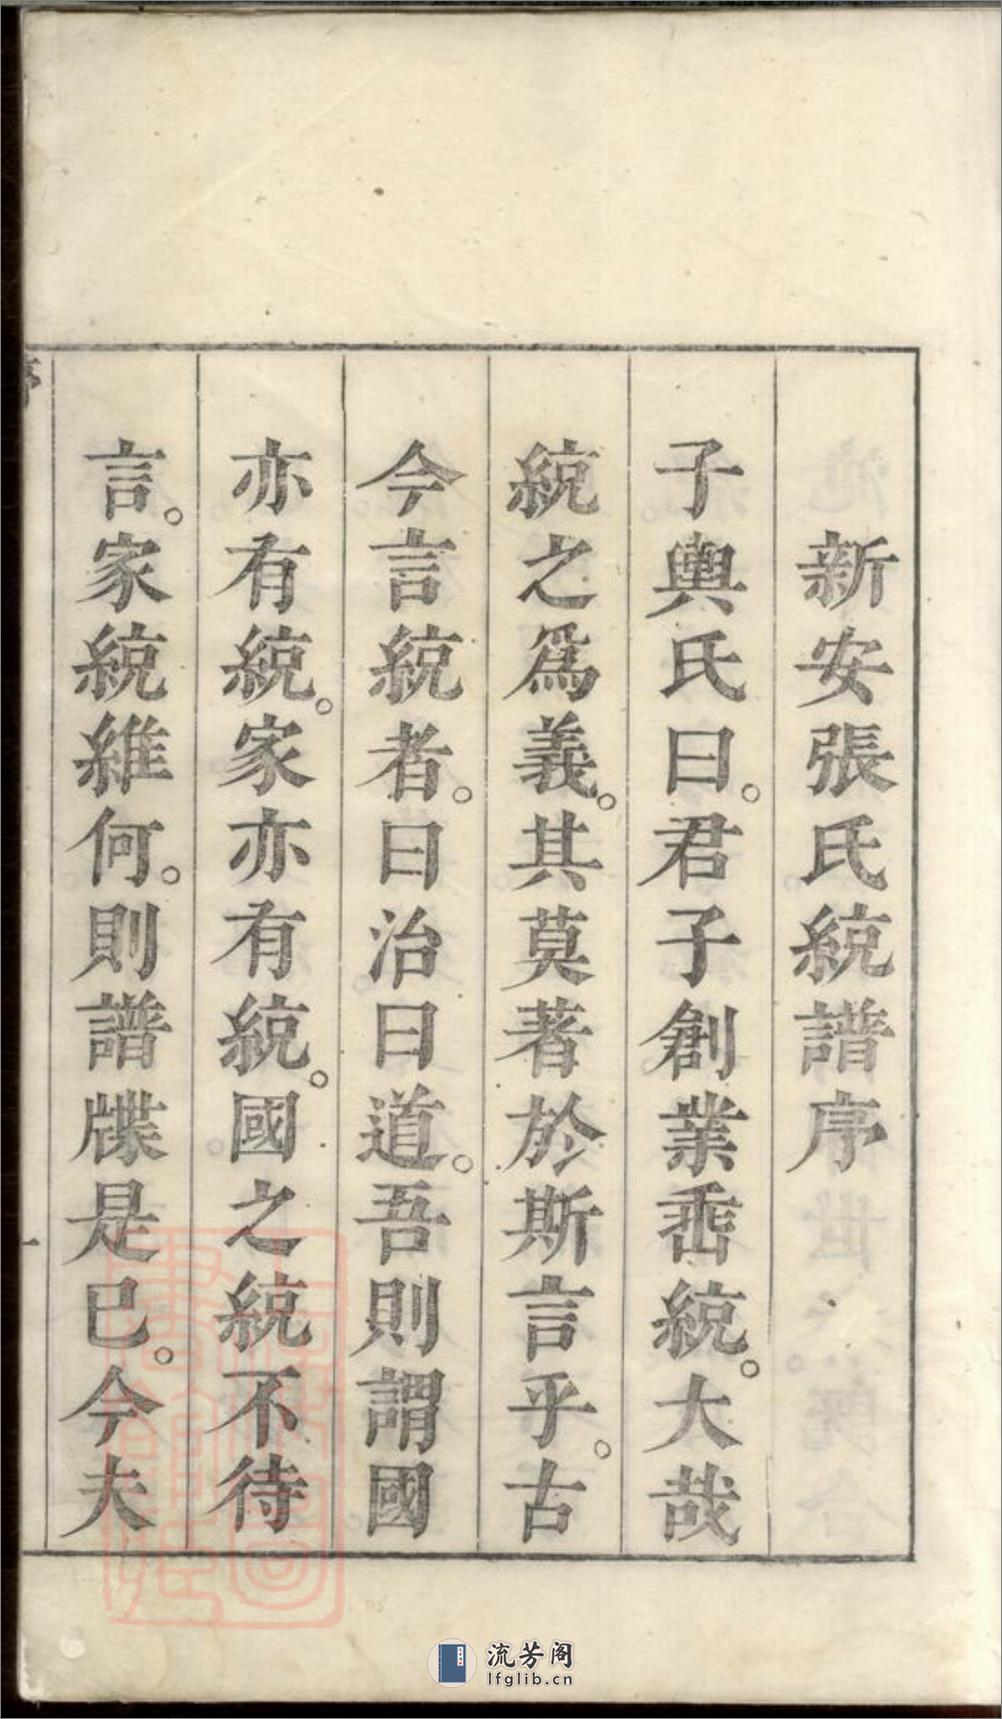 新安張氏統譜序
子輿氏曰。君子創業垂統。大哉
統之爲義。其莫著於斯言乎。古
今言統者。曰治曰道。吾則謂國
亦有統。家亦有統。國之統不待
言。家統維何。則譜牒是已。今夫
序
一
流芳阁
lfglib.cn